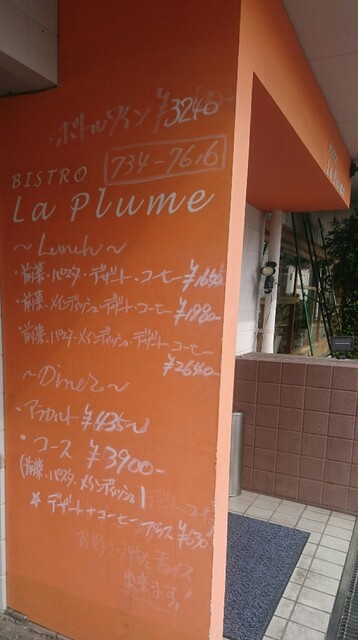 ・ボトルワイン ¥3240-
BISTRO 734-7616
La Plume
～Lunch～
・前菜・パスタ・デザート・コーヒー ¥1640-
・前菜・メインディッシュ・デザート・コーヒー ¥1980-
・前菜・パスタ・メインディッシュ・デザート・コーヒー
¥2640-
～Diner～
・アラカルト ¥435～
・コース ¥3900-
(前菜、パスタ、メインディッシュ)
☆デザート+コーヒープラス ¥630
出来ます!
La Plume